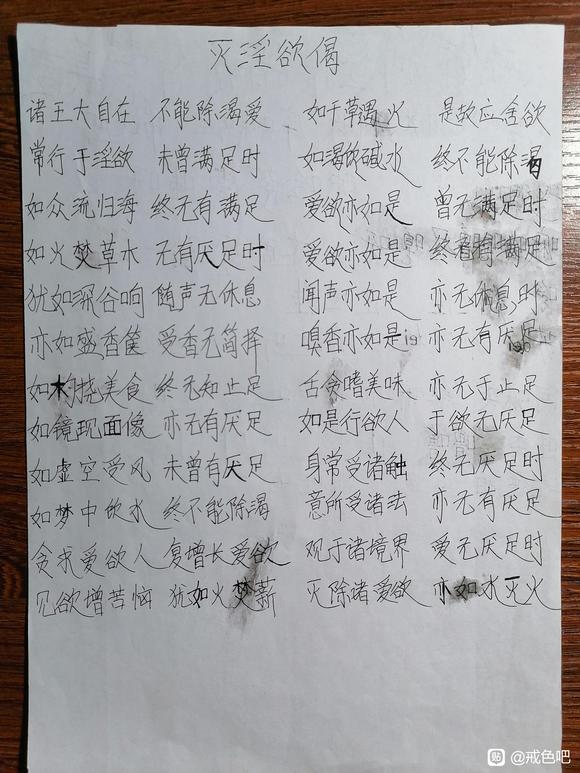 灭淫欲偈
诸王大自在 不能除渴爱 如干草遇火 是故应舍欲
常行于淫欲 未曾满足时 如渴饮碱水 终不能除渴
如众流归海 终无有满足 爱欲亦如是 曾无满足时
如火焚草木 无有厌足时 爱欲亦如是 终无满足
犹如深谷响 随声无休息 闻声亦如是 亦无休息时
亦如盛香箧 受香无简择 嗅香亦如是 亦无有厌足
如杓挠美食 终无知止足 舌贪嗜美味 亦无于止足
如镜现面像 亦无有厌足 如是行欲人 于欲无厌足
如虚空受风 未曾有厌足 身常受诸触 终无厌足时
如梦中饮水 终不能除渴 意所受诸法 亦无有厌足
贪求爱欲人 复增长爱欲 观于诸境界 爱无厌足时
见欲增苦恼 犹如火焚薪 灭除诸爱欲 亦如水灭火
贴 @戒色吧